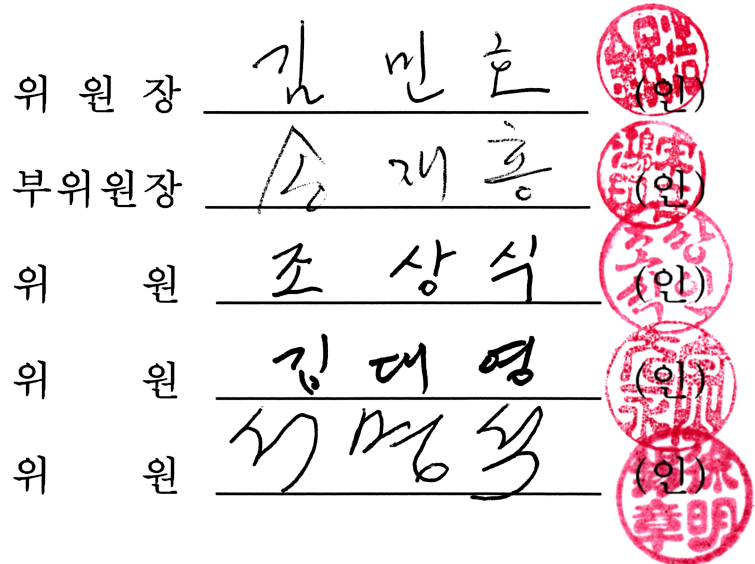 위 원 장 김 민 호 (인)
부위원장 송 재 홍 (인)
위 원 조 상 식 (인)
위 원 김 대 영 (인)
위 원 서 명 석 (인)